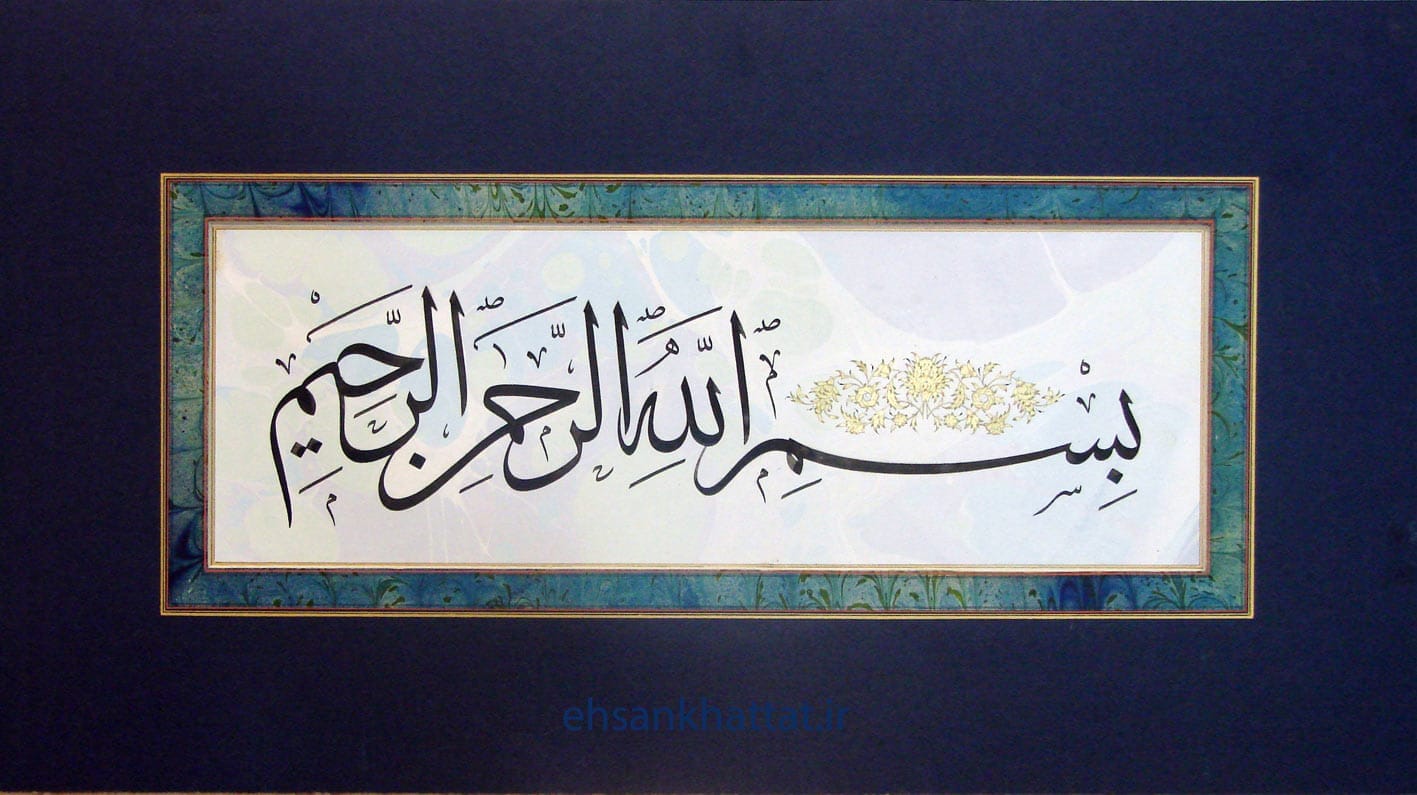 بِسْمِ اللَّهِ الرَّحْمٰنِ الرَّحِيْمِ
ehsankhattat.ir